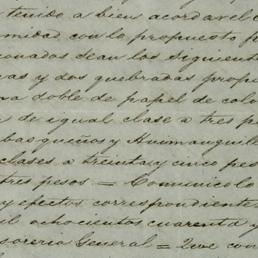 tenido a bien acordar el
midad con lo propuesto p
onados sean los siguient
vas y dos quebradas propu
a doble de papel de colo
de igual clase a tres pe
basqueños y Huimanguill
clases a treinta y cinco pes
tres pesos = Comunicolo
y efectos correspondiente
il ochocientos cuarenta y
sorería General = Que con